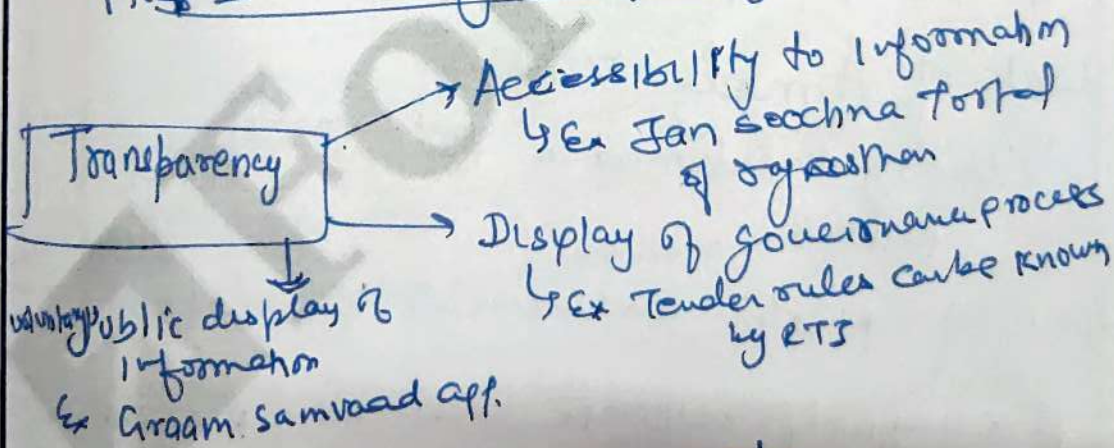 Transparency
Accessibility to Information
↳ Ex Jan Soochna Portal
of rajasthan
Display of governance process
↳ Ex Tender rules can be known
by RTI
voluntary public display of
Information
Ex Graam Samvaad app.